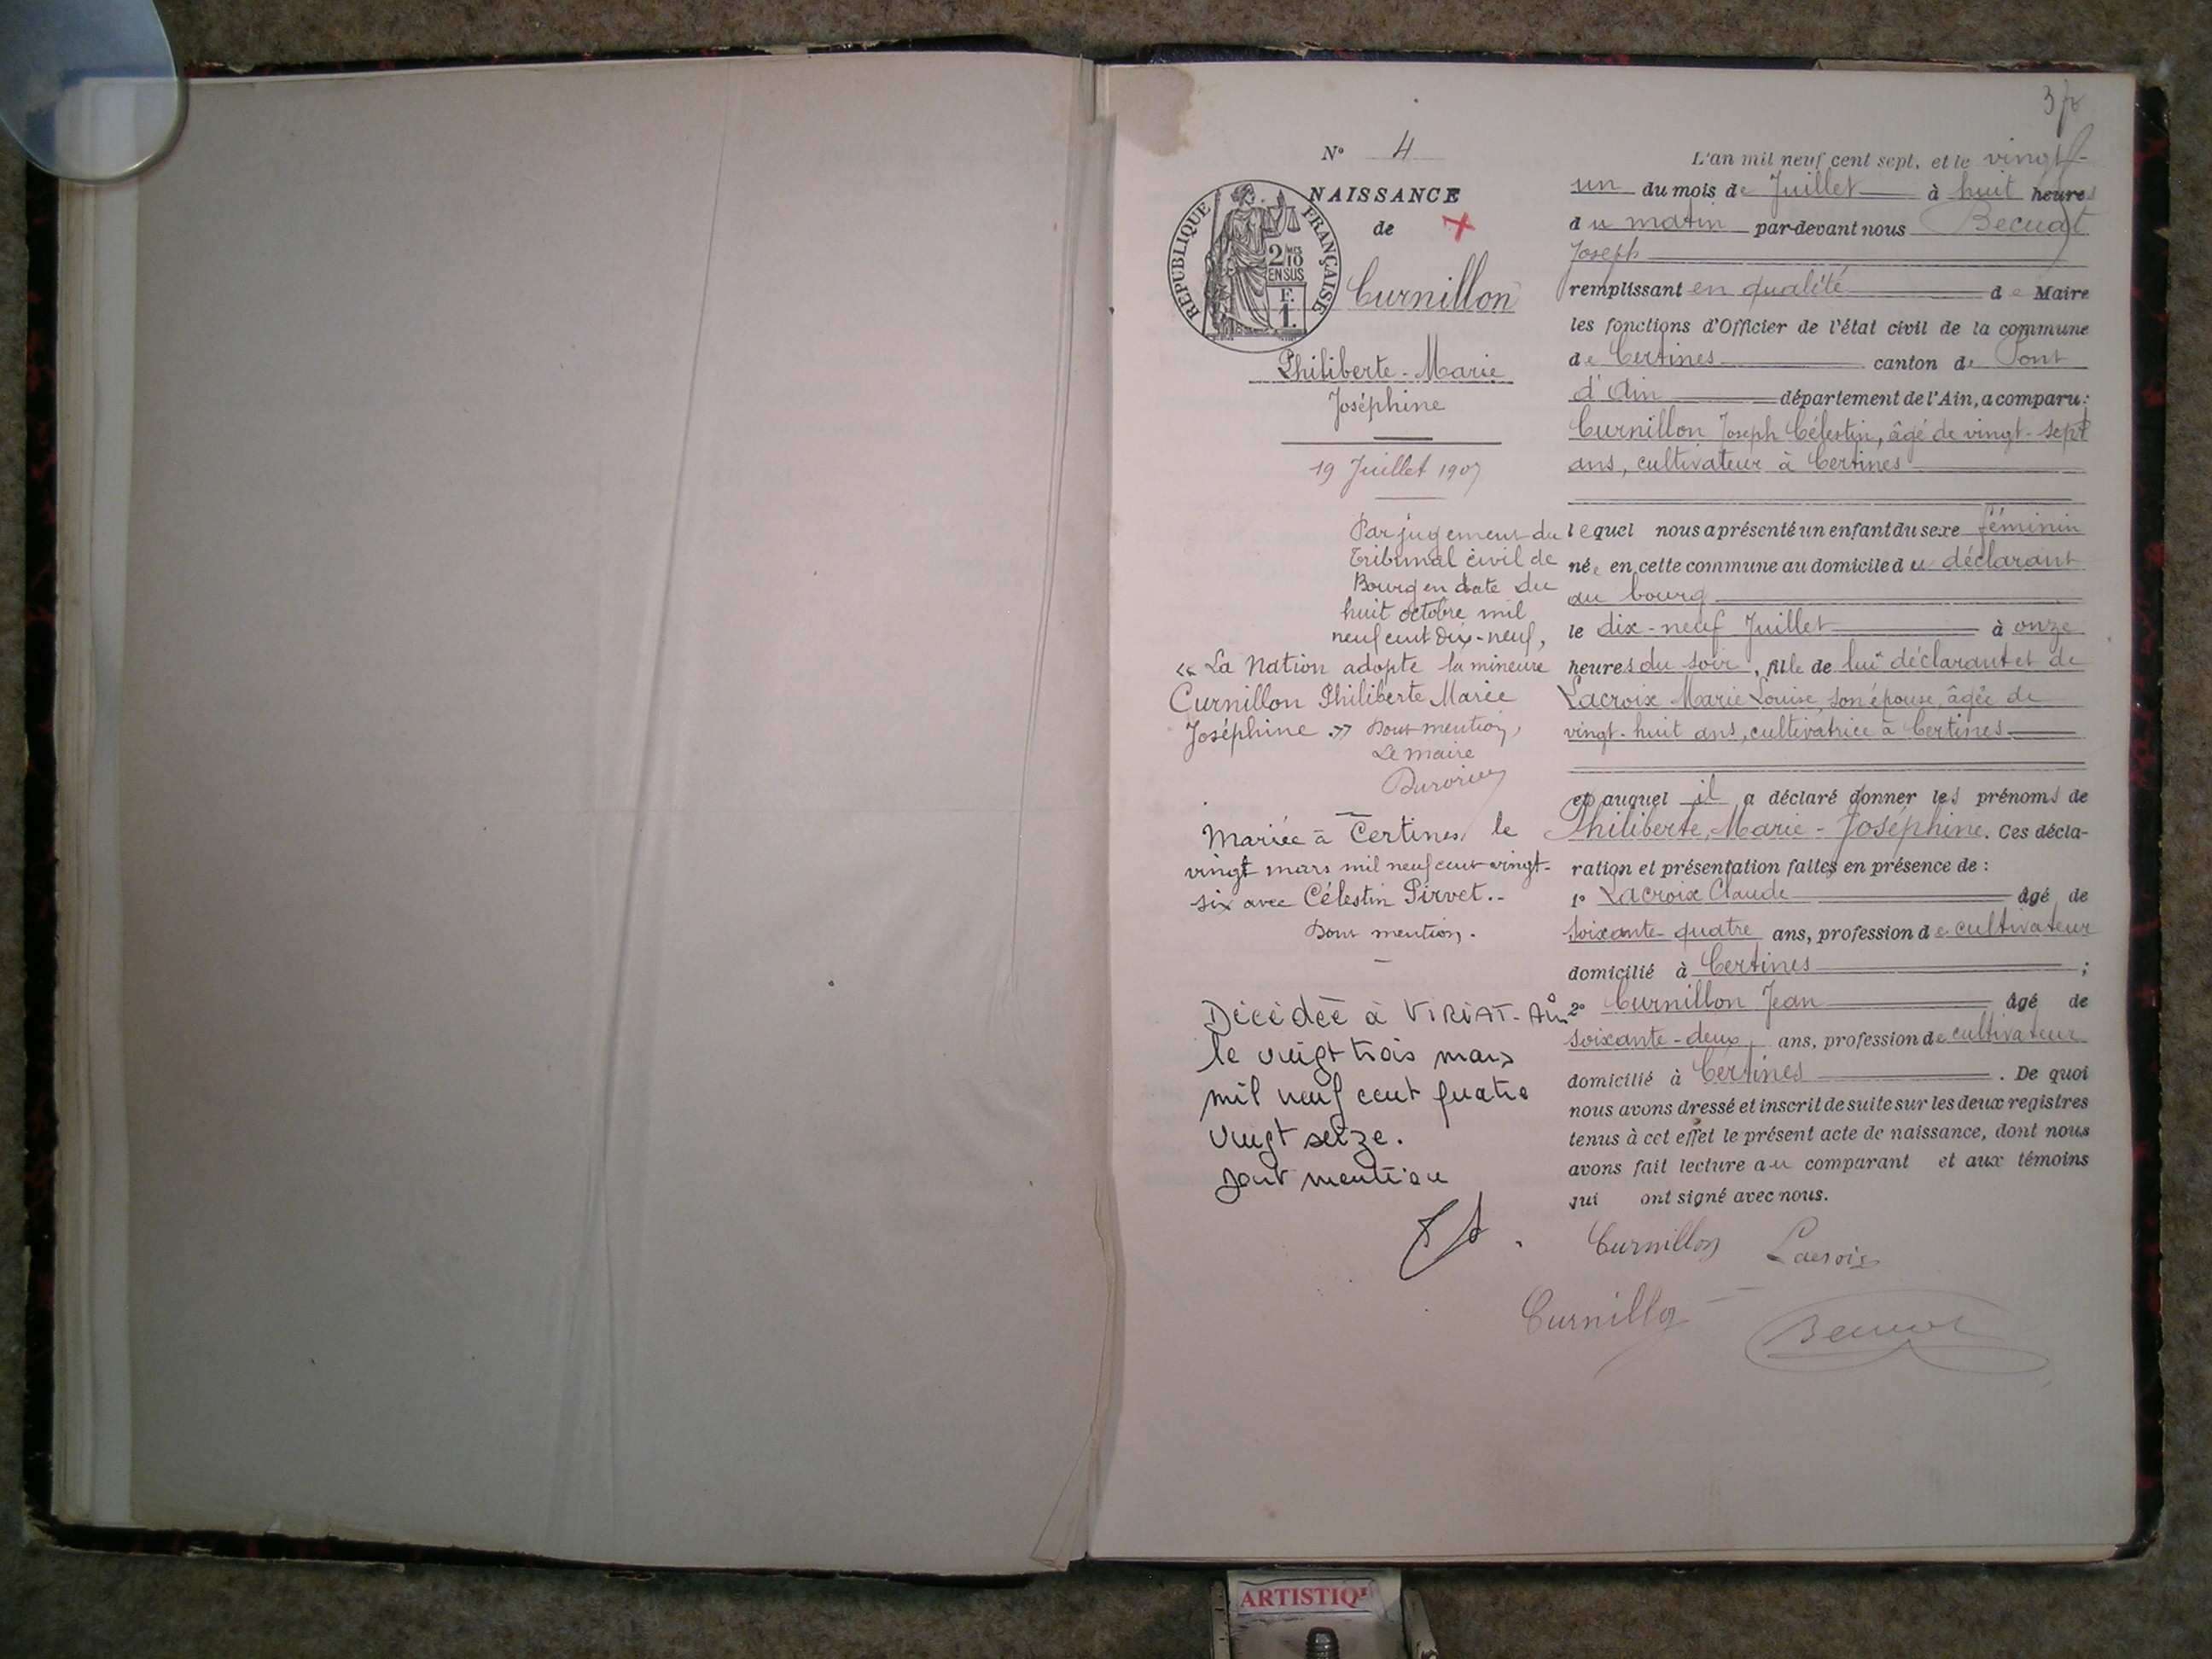 N° 4
NAISSANCE
de
RÉPUBLIQUE FRANÇAISE
2/10 EN SUS
F. 1.
Curnillon
Philiberte - Marie
Joséphine
19 Juillet 1907
Par jugement du
Tribunal civil de
Bourg en date du
huit octobre mil
neuf cent dix-neuf,
« La Nation adopte la mineure
Curnillon Philiberte Marie
Joséphine » Dont mention,
Le maire
Mariée à Certines le
vingt mars mil neuf cent vingt-
six avec Célestin Pirvet..
Dont mention.
Décédée à VIRIAT-Ain
le vingt trois mars
mil neuf cent quatre
vingt seize.
Dont mention
L'an mil neuf cent sept, et le vingt-
un du mois de Juillet à huit heures
du matin par-devant nous Becuat
Joseph
remplissant en qualité de Maire
les fonctions d'Officier de l'état civil de la commune
de Certines canton de Pont
d'Ain département de l'Ain, a comparu:
Curnillon Joseph Célestin, âgé de vingt-sept
ans, cultivateur à Certines
lequel nous a présenté un enfant du sexe féminin
née en cette commune au domicile du déclarant
au bourg
le dix-neuf Juillet à onze
heures du soir, fille de lui déclarant et de
Lacroix Marie Louise, son épouse, âgée de
vingt-huit ans, cultivatrice à Certines
et auquel il a déclaré donner les prénoms de
Philiberte, Marie - Joséphine. Ces décla-
ration et présentation faites en présence de :
1° Lacroix Claude âgé de
soixante-quatre ans, profession de cultivateur
domicilié à Certines ;
2° Curnillon Jean âgé de
soixante-deux ans, profession de cultivateur
domicilié à Certines . De quoi
nous avons dressé et inscrit de suite sur les deux registres
tenus à cet effet le présent acte de naissance, dont nous
avons fait lecture au comparant et aux témoins
qui ont signé avec nous.
Curnillon Lacroix
Curnillon Becuat
ARTISTIQ